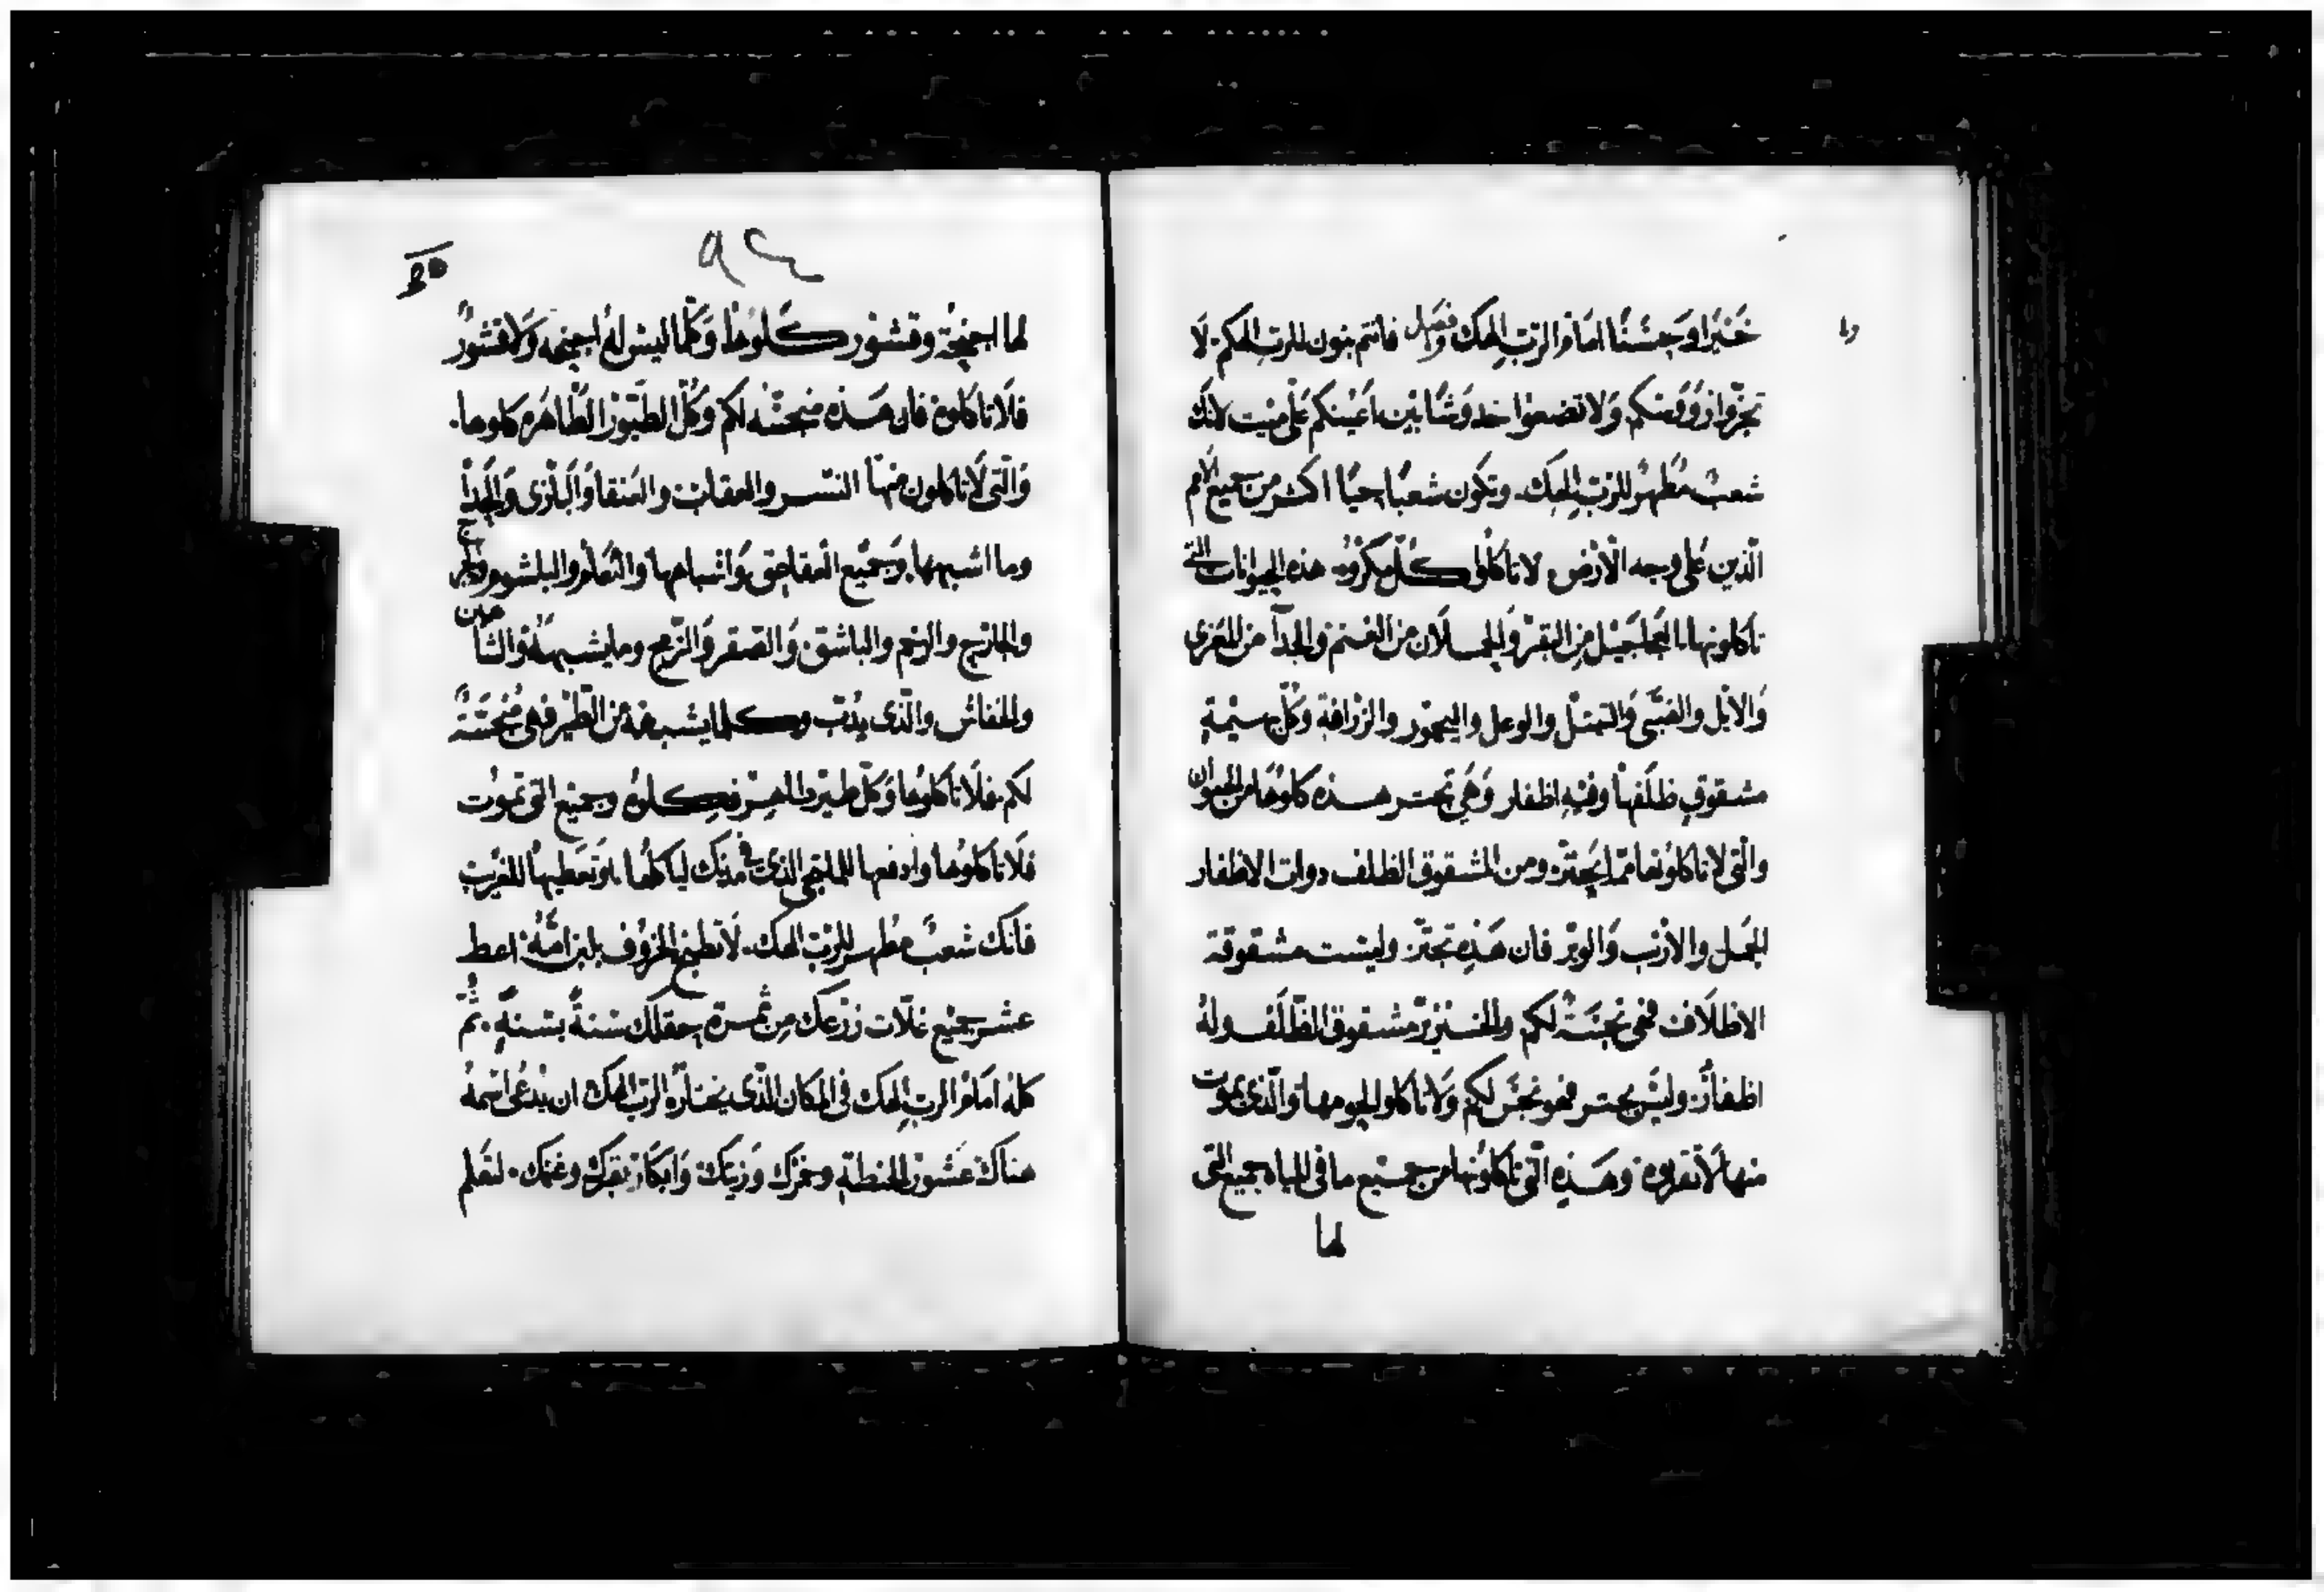 خَيرًا وَحسَنًا امَام الرّب الهك فصل وا فانتم بنون للرب الهكم. لَا
تجزّوا رووسكم وَلا تضعوا خدوشًا بين اعَينكم عَلى ميت لانك
شعبٌ مُطهرٌ للرّب الهك. وتكون شعبًا حيًا اكثر من جميع الامم
الّذين عَلى وجه الارض لا تاكلوا كلّ مكرُوه. هذه الحيوانات التى
تاكلونها العجَاجيل مِن البقر وَالحملان من الغنم والجدآ من المَعزى
وَالايّل والضبّى وَالتيتل والوعل واليحمور والزرافة وكلّ بهيمةٍ
مشقوقٍ ظلفهَا وفيه اظفار وَهَى تجتر هذه كلوُهَا من الحيوان
والّتى لا تاكلونهَا ممّا يَجترّ ومن المشقوق الظلف دوات الاظفار
الجمَل والارنب وَالوبر فان هَذِه تجترّ وليسَت مشقوقة
الاظلَاف فهى نجسَة لكم والخنزير مشقوق الظّلَف وله
اظفارٌ وليسَ يجتر فهو نجسٌ لكم وَلا تاكلوا لحومها والّذى يموت
منها لَا تقربوه وهَذِه الّتى تاكلوُنها من جميع ما فى المياه جميع التى
لها
٩٤
لها اجنحَة وقشور كلوهَا وَكلما ليسَ لهُ اجنحه وَلا قشورٌ
فلَا تاكلوه فان هَذه منجسَه لكم وَكلّ الطيّور الطّاهَره كلوها.
وَالّتى لَا تاكلون منهَا النسر والعقاب والعَنقا وَالبَازى وَالحِدَا
وما اشبهها وَجميع العقاعق وَاشباهها والنعام والبلشوم
والخازج والرخم والباشق وَالصقر وَالزّمج وما يشبههَا والشاهين
والخفاش والّذى يدُبّ وكلما يشبهه من الطّير فهى منُجسَةً
لكم فلَا تاكلوها وَكلّ طير طاهر فكلوه وجميع التى تموت
فلَا تاكلوُها وادفعها للملتجى الذى فى مدنك لياكلهَا او تعطيهَا للغريبِ
فانك شعبٌ مطهر للرّب الهك. لَا تطبخ الخرُوف بلبن امّه اعط
عشر جميع غلّات زرعكَ مِن ثمرة حقلك سَنةً بسَنةٍ. ثم
كله امَام الرب الهك فى المكان الذى يختارُه الرّب الهك ان يدْعى اسمهُ
هناك عَشور الحنطةِ وخمرك وزيتك وَابكار بقرك وغنمك. لتعَلم